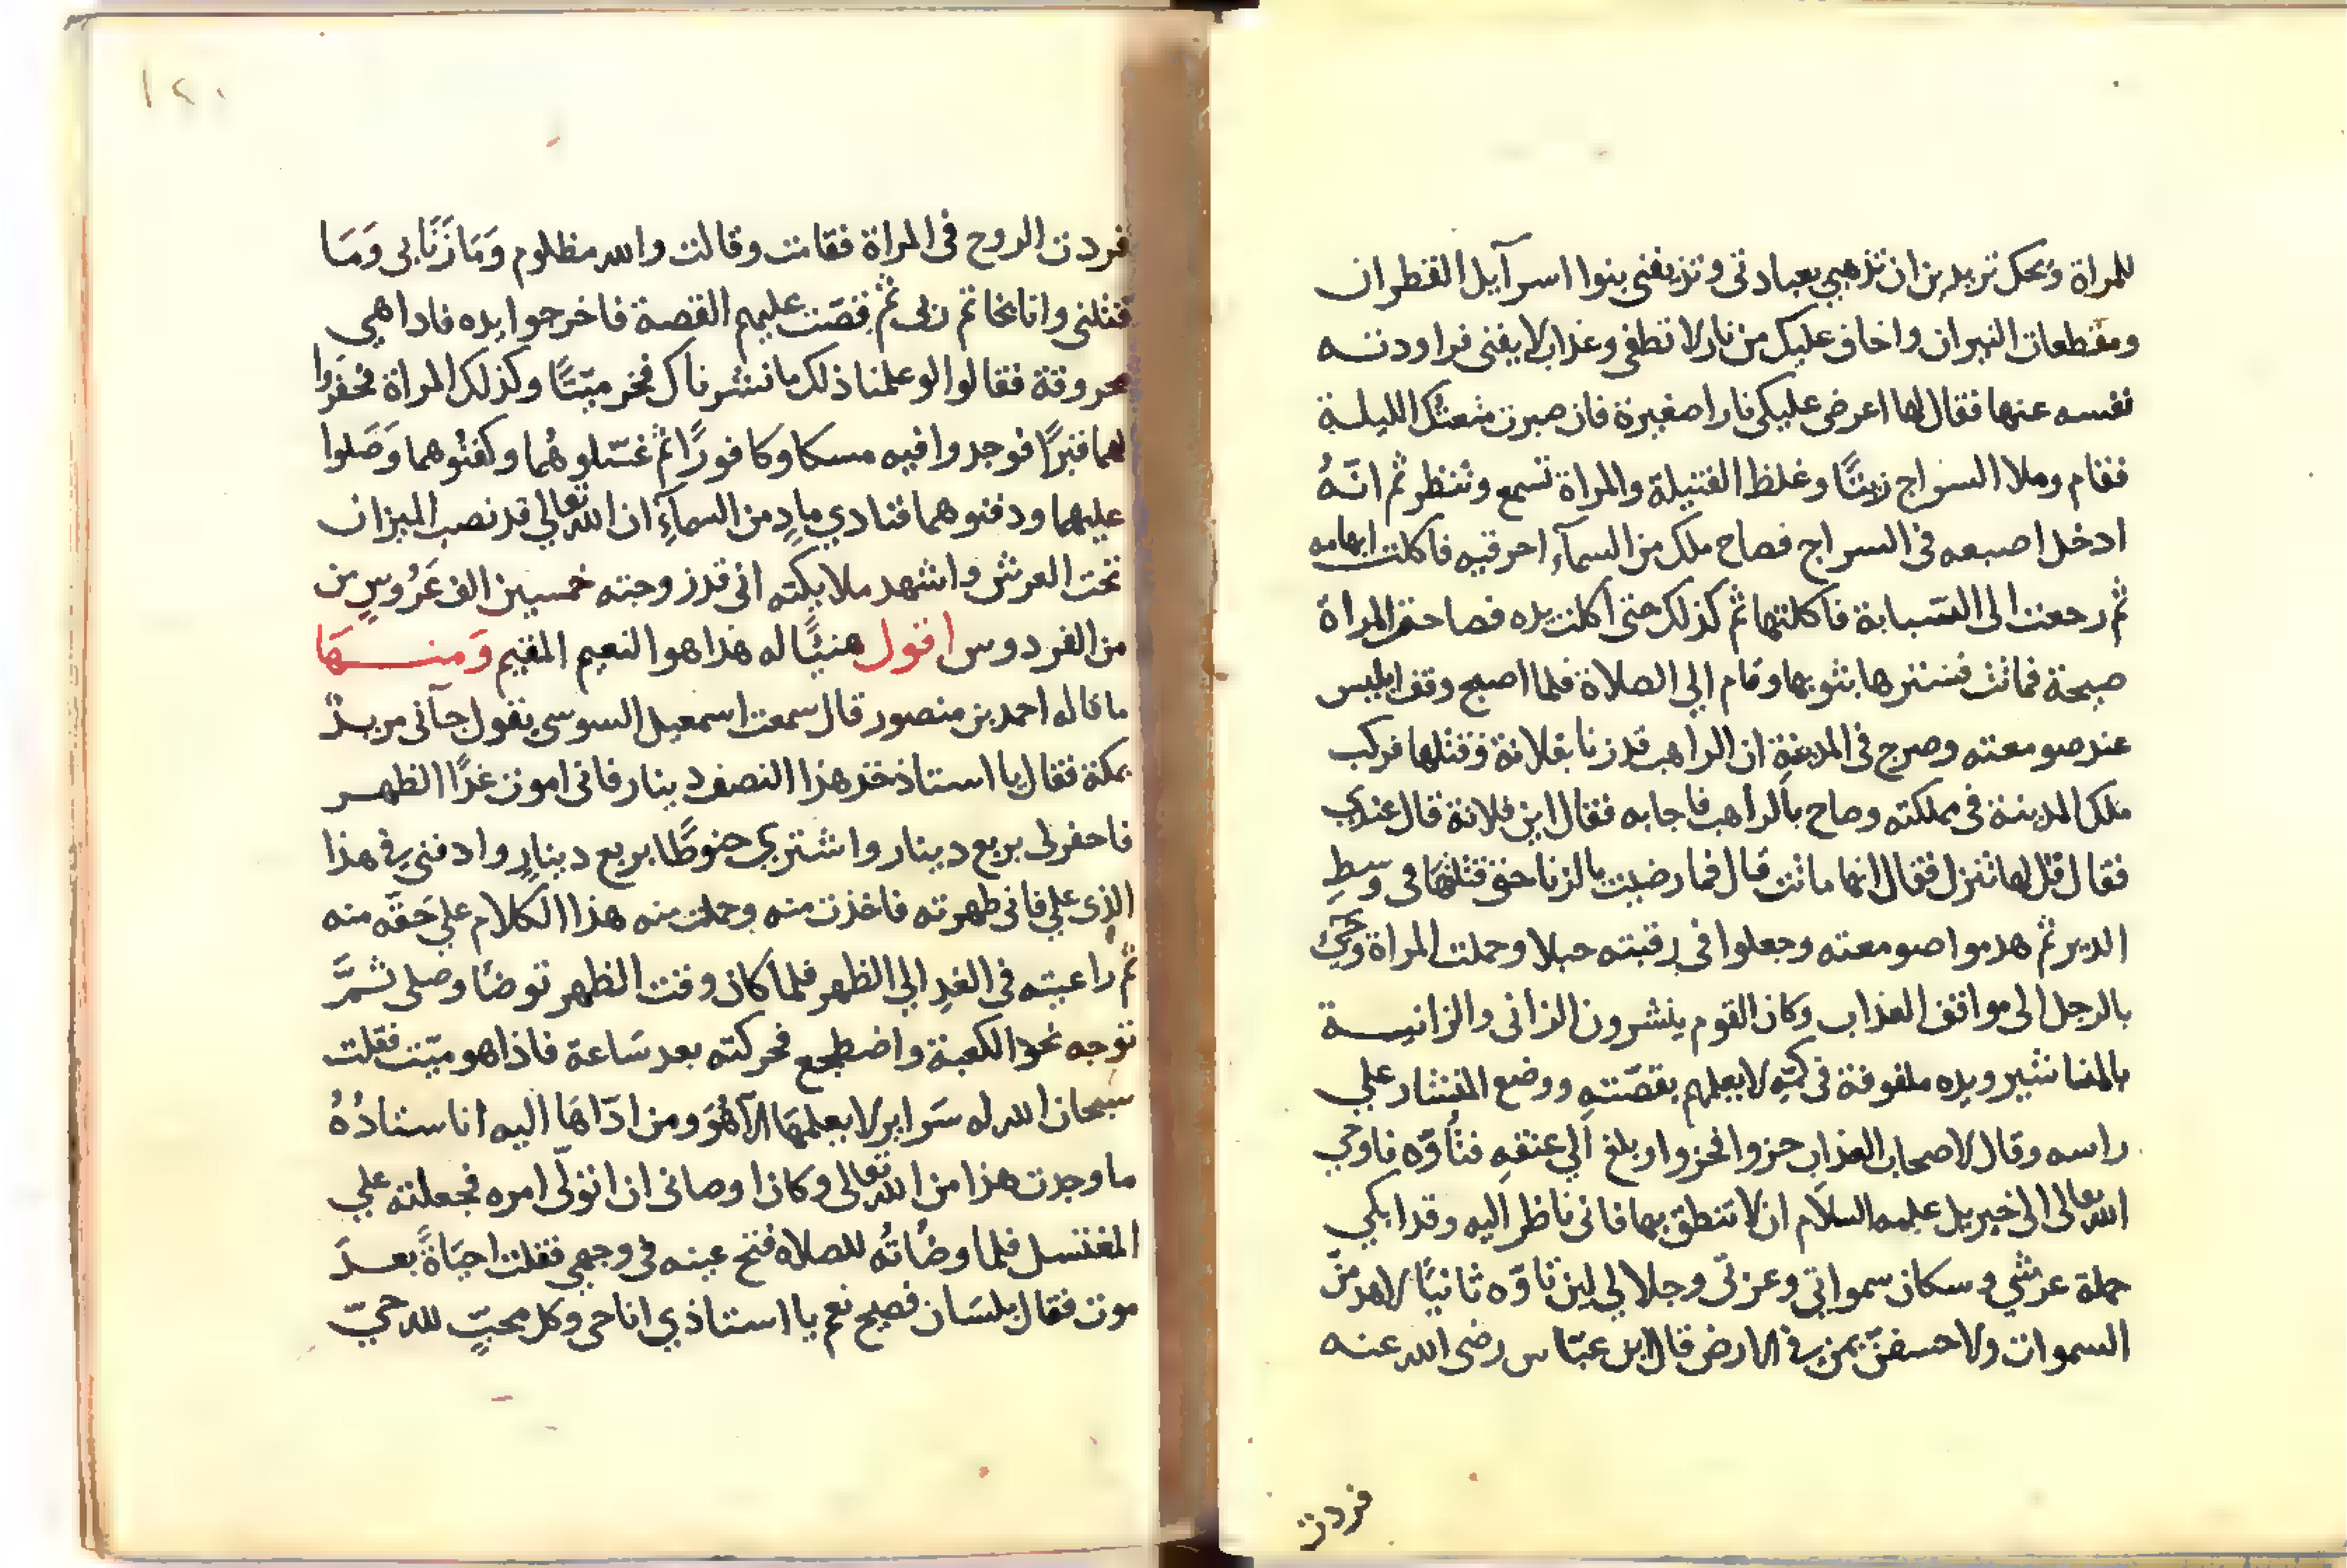 للمراة ويحك تريدين ان تذهبي بعبادتي وتزيفني بنوا اسرآيل القطران
ومقطعات النيران واخاف عليك من نار لا تطفي وعذاب لا يفنى فراودته
نفسه عنها فقال لها اعرض عليكي نارا صغيرة فان صبرت متعتك الليلة
فقام وملا السراج زيتًا وغلظ الفتيلة والمراة تسمع وتنظر ثم انّهُ
ادخل اصبعه في السراج فصاح ملك من السمآء احرقيه فاكلت ابهامه
ثم رجعت الى السّبابة فاكلتها ثم كذلك حتى اكلت يده فصاحت المراة
صيحة فماتت فسترها بثوبها وقام الي الصلاة فلما اصبح وقف ابليس
عند صومعته وصرح في المدينة ان الراهب قد زنا بفلانة وقتلها فركب
ملك المدينة في مملكته وصاح بالراهب فاجابه فقال اين فلانة قال عندي
فقال قل لها تنزل فقال انها ماتت قال فما رضيت بالزنا حتى قتلتها في وسطِ
الدير ثم هدموا صومعته وجعلوا في رقبته حبلا وحملت المراة وجئ
بالرجل الى مواقف العذاب وكان القوم ينشرون الزاني والزانية
بالمناشير ويده ملفوفة في كمّهِ لا يعلمهم بقصّتهِ ووضع المنشار علي
راسه وقال لاصحاب العذابِ حزوا فحزوا وبلغ الي عنقهِ فتأوّه فاوحي
الله تعالى الى جبريل عليه السلام ان لا تنطق بها فاني ناظر اليه وقد ابكي
حملة عرشي وسكان سمواتي وعزتي وجلالي لين تاوّه ثانيًا لاهدمنّ
السموات ولا خسفنّ بمن في الارض قال ابن عبّاس رضى الله عنه
فردت
١٢٠
فردت الروح في المراة فقامت وقالت والله مظلوم وَمَا زَنَا بي وَمَا
قتلني وانا بخاتم ربى ثم قصّت عليهم القصة فاخرجوا يده فاذا هي
محروقة فقالوا لو علمنا ذلك ما نشرناك فخر ميّتًا وكذلك المراة فحفروا
لهما قبرًا فوجدوا فيه مسكا وكافورًا ثم غسّلوهُما وكفنُوهما وَصَلوا
عليهما ودفنوهما فنادي مادٍ من السمآءِ ان الله تعالي قد نصب الميزان
تحت العرش واشهد ملايكته اني قد زوجته خمسين الف عَرُوسٍ من
من الفردوس اقول هنيئًا له هذا هو النعيم المقيم وَمنهَا
ما قاله احمد بن منصور قال سمعت اسمعيل السوسي يقول جآني مريدٌ
بمكة فقال يا استاذ خذ هذا النصف دينار فاني اموت غدًا الظهر
فاحفر لي بربع دينار واشتري حنوطًا بربع دينارٍ وادفني في هذا
الذي علي فاني طهرته فاخذت منه وحملت منه هذا الكلام علي خفّه منه
ثم راعيته في الغدِ الي الظهر فلما كان وقت الظهر توضا وصلى ثمَّ
توجه نحو الكعبة واضطجع فحركته بعد سَاعة فاذا هو ميّت فقلت
سبحان الله له سَراير لا يعلمهَا الآ هُوَ ومن ادّاهَا اليه انا استاذُهُ
ما وجدت هذا من الله تعالى وكان اوصاني ان اتولّى امره فجعلته علي
المغتسل فلما وضُاتُه للصلاه فتح عينه في وجهي فقلت احيَاةً بعدَ
موت فقال بلسَان فصيح نعم يا استاذي انا حى وكل محبٍّ لله حيّ